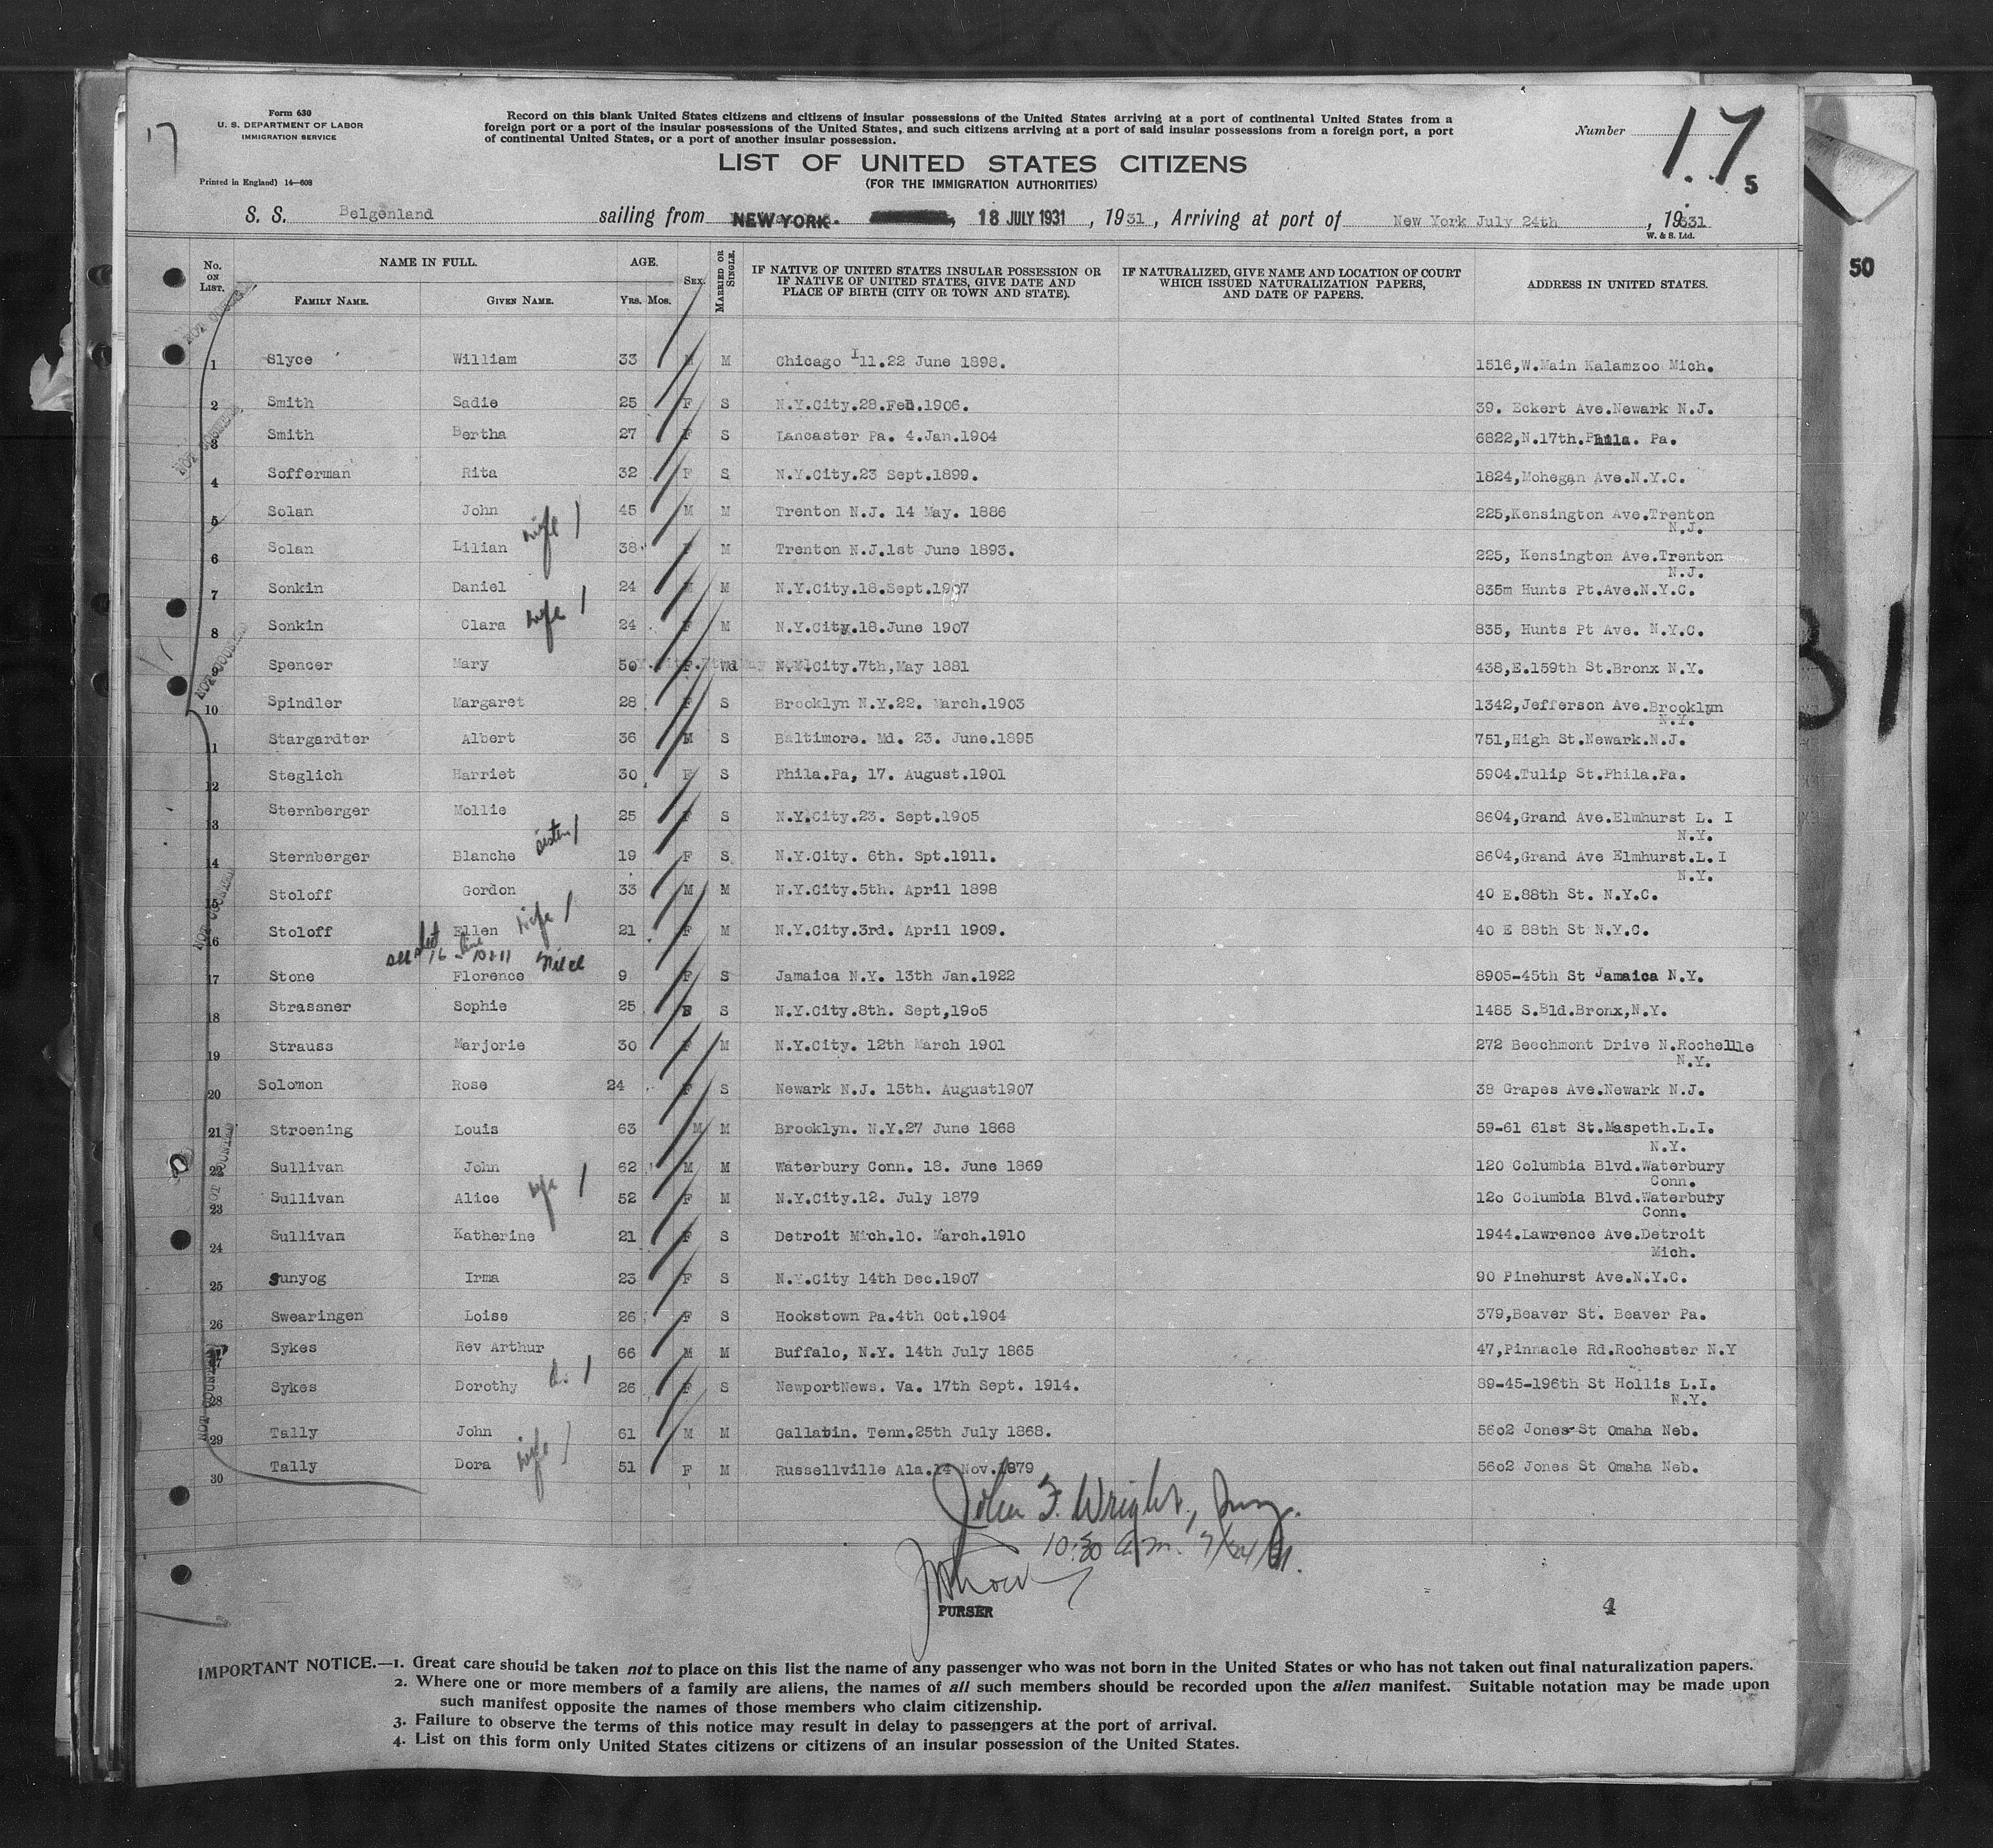 17
Form 630
U. S. DEPARTMENT OF LABOR
IMMIGRATION SERVICE
Printed in England) 14—608
Record on this blank United States citizens and citizens of insular possessions of the United States arriving at a port of continental United States from a
foreign port or a port of the insular possessions of the United States, and such citizens arriving at a port of said insular possessions from a foreign port, a port
of continental United States, or a port of another insular possession.
Number 17
S
LIST OF UNITED STATES CITIZENS
(FOR THE IMMIGRATION AUTHORITIES)
S. S. Belgenland sailing from NEW YORK. , 18 JULY 1931 , 1931 , Arriving at port of New York July 24th , 19331
W. & S. Ltd.
No. ON LIST. NAME IN FULL. FAMILY NAME. GIVEN NAME. AGE. YRS. MOS. SEX. MARRIED OR SINGLE. IF NATIVE OF UNITED STATES INSULAR POSSESSION OR IF NATIVE OF UNITED STATES, GIVE DATE AND PLACE OF BIRTH (CITY OR TOWN AND STATE). IF NATURALIZED, GIVE NAME AND LOCATION OF COURT WHICH ISSUED NATURALIZATION PAPERS, AND DATE OF PAPERS. ADDRESS IN UNITED STATES.
1 Slyce William 33 M M Chicago Ill.22 June 1898. 1516,W.Main Kalamzoo Mich.
2 Smith Sadie 25 F S N.Y.City.28.Feb.1906. 39. Eckert Ave.Newark N.J.
3 Smith Bertha 27 F S Lancaster Pa. 4.Jan.1904 6822,N.17th.Phila. Pa.
4 Sofferman Rita 32 F S N.Y.City.23 Sept.1899. 1824,Mohegan Ave.N.Y.C.
5 Solan John 45 M M Trenton N.J. 14 May. 1886 225,Kensington Ave.Trenton
N.J.
6 Solan Lilian wife / 38 F M Trenton N.J.1st June 1893. 225, Kensington Ave.Trenton
N.J.
7 Sonkin Daniel 24 M M N.Y.City.18.Sept.1907 835m Hunts Pt.Ave.N.Y.C.
8 Sonkin Clara wife / 24 F M N.Y.City.18.June 1907 835, Hunts Pt Ave. N.Y.C.
9 Spencer Mary 50 F Wd N.Y.City.7th,May 1881 438,E.159th St.Bronx N.Y.
10 Spindler Margaret 28 F S Brooklyn N.Y.22. March.1903 1342,Jefferson Ave.Brooklyn
N.Y.
11 Stargardter Albert 36 M S Baltimore. Md. 23. June.1895 751,High St.Newark.N.J.
12 Steglich Harriet 30 F S Phila.Pa, 17. August.1901 5904.Tulip St.Phila.Pa.
13 Sternberger Mollie 25 F S N.Y.City.23. Sept.1905 8604,Grand Ave.Elmhurst L. I
N.Y.
14 Sternberger Blanche sister / 19 F S N.Y.City. 6th. Spt.1911. 8604,Grand Ave Elmhurst.L.I
N.Y.
15 Stoloff Gordon 33 M M N.Y.City.5th. April 1898 40 E.88th St. N.Y.C.
16 Stoloff Ellen wife / 21 F M N.Y.City.3rd. April 1909. 40 E 88th St N.Y.C.
16 line niece
17 Stone Florence 9 F S Jamaica N.Y. 13th Jan.1922 8905-45th St Jamaica N.Y.
18 Strassner Sophie 25 F S N.Y.City.8th. Sept,19o5 1485 S.Bld.Bronx,N.Y.
19 Strauss Marjorie 30 F M N.Y.City. 12th March 1901 272 Beechmont Drive N.Rochellle
N.Y.
20 Solomon Rose 24 F S Newark N.J. 15th. August1907 38 Grapes Ave.Newark N.J.
21 Stroening Louis 63 M M Brooklyn. N.Y.27 June 1868 59-61 61st St.Maspeth.L.I.
N.Y.
22 Sullivan John 62 M M Waterbury Conn. 18. June 1869 120 Columbia Blvd.Waterbury
Conn.
23 Sullivan Alice wife / 52 F M N.Y.City.12. July 1879 12o Columbia Blvd.Waterbury
Conn.
24 Sullivan Katherine 21 F S Detroit Mich.1o. March.1910 1944.Lawrence Ave.Detroit
Mich.
25 Sunyog Irma 23 F S N.Y.City 14th Dec.1907 90 Pinehurst Ave.N.Y.C.
26 Swearingen Loise 26 F S Hookstown Pa.4th Oct.1904 379,Beaver St. Beaver Pa.
27 Sykes Rev Arthur 66 M M Buffalo, N.Y. 14th July 1865 47,Pinnacle Rd.Rochester N.Y
28 Sykes Dorothy d. / 26 F S NewportNews. Va. 17th Sept. 1914. 89-45-196th St Hollis L.I.
N.Y.
29 Tally John 61 M M Gallatin. Tenn.25th July 1868. 56o2 Jones St Omaha Neb.
30 Tally Dora wife / 51 F M Russellville Ala.14 Nov.1879 56o2 Jones St Omaha Neb.
John F. Wright,
10:30 a.m. 7/24/31.
PURSER
4
IMPORTANT NOTICE.—1. Great care should be taken not to place on this list the name of any passenger who was not born in the United States or who has not taken out final naturalization papers.
2. Where one or more members of a family are aliens, the names of all such members should be recorded upon the alien manifest. Suitable notation may be made upon
such manifest opposite the names of those members who claim citizenship.
3. Failure to observe the terms of this notice may result in delay to passengers at the port of arrival.
4. List on this form only United States citizens or citizens of an insular possession of the United States.
50
31